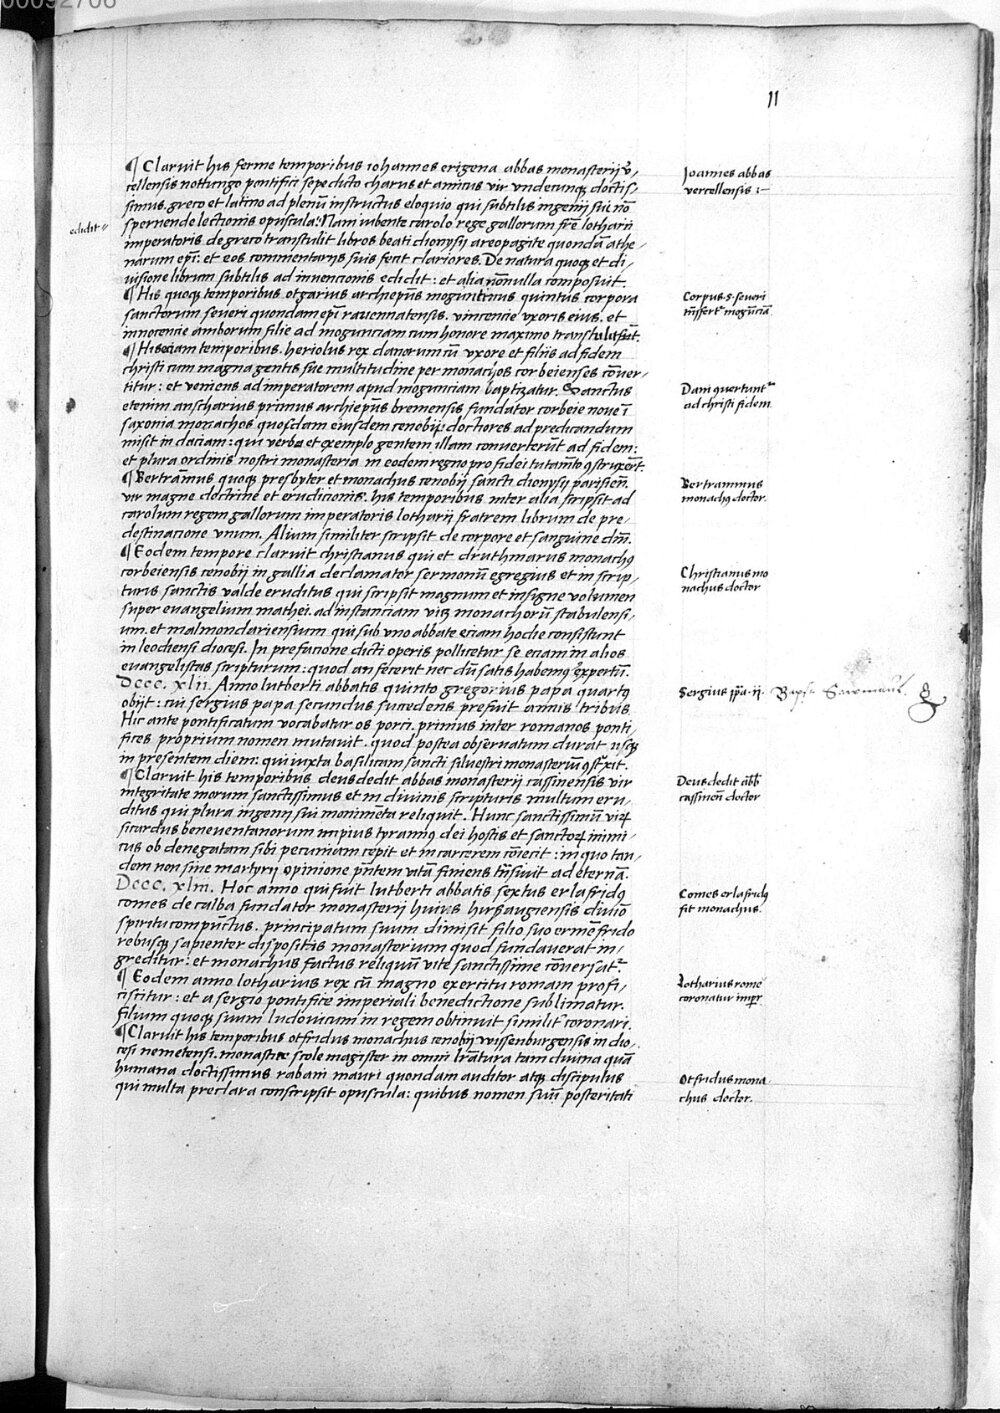 11
¶ Claruit his ferme temporibus iohannes erigena abbas monasterij v̄
cellensis nottungo pontifici sepe dicto charus et amicus vir vndecunqꝫ doctis/
simus. greco et latino ad plenū instructus eloquio qui subtilis ingenij sui nō
spernende lectionis opuscula: Nam iubente carolo rege gallorum fr̄e lotharij
edidit
imperatoris de greco transtulit libros beati dionysij areopagite quondā athe/
narum ep̄i: et eos commentarijs suis fecit clariores. De natura quoqꝫ et di/
uisione librum subtilis ad inuencionis edidit: et alia nōnulla composuit.
¶ His quoqꝫ temporibus otgarius archiep̄us moguntinus quintus corpora
sanctorum. seueri quondam ep̄i rauennatensis. vincencie vxoris eius. et
innocencie amborum filie ad mogunciam cum honore maximo transtulit.
¶ His eciam temporibus. heriolus rex danorum cū vxore et filiis ad fidem
christi cum magna gentis sue multitudine per monachos corbeienses cōuer/
titur: et veniens ad imperatorem apud mogunciam baptizatur. Sanctus
etenim anscharius primus archiep̄us bremensis fundator corbeie noue ī
saxonia monachos quosdam eiusdem cenobij doctiores ad predicandum
misit in daciam: qui verbo et exemplo gentem illam conuerterūt ad fidem:
et plura ordinis nostri monasteria in eodem regno pro fidei tutamīto ꝯstruxerūt.
¶ Bertrāmus quoqꝫ presbyter et monachus cenobij sancti dionysij parisieñ.
vir magne doctrine et erudicionis. his temporibus inter alia scripsit ad
carolum regem gallorum imperatoris lotharij fratrem librum de pre/
destinacione vnum. Alium similiter scripsit de corpore et sanguine dn̄i.
¶ Eodem tempore claruit christianus qui et druthmarus monachꝰ
corbeiensis cenobij in gallia declamator sermonū egregius et in scrip/
turis sanctis valde eruditus qui scripsit magnum et insigne volumen
super euangelium mathei. ad instanciam viꝫ monachorū stabulensi/
um. et malmondariensium qui sub vno abbate eciam hodie consistunt
in leodiensi diocesi. In prefacione dicti operis pollicetur se eciam in alios
euangelistas scripturum: quod an fecerit nec dū satis habemꝰ expertū.
Dccc. xlii. Anno lutberti abbatis quinto gregorius papa quartꝰ
obijt: cui sergius papa secundus sucedens prefuit annis tribus.
Hic ante pontificatum vocabatur os porci. primus inter romanos ponti
fices proprium nomen mutauit. quod postea obseruatum durat usqꝫ
in presentem diem: qui iuxta basilicam sancti siluestri monasteriū ꝯstruxit.
¶ Claruit his temporibus deusdedit abbas monasterij cassinensis vir
integritate morum sanctissimus et in diuinis scripturis multum eru/
ditus qui plura ingenij sui monimēta reliquit. Hunc sanctissimū virū
sicardus beneuentanorum impius tyrannꝰ dei hostis et sanctoꝝ inimi/
cus ob denegatam sibi pecuniam cepit et in carcerem cōiecit: in quo tan/
dem non sine martyrij opinione pn̄tem vitā finiens trāsiuit ad eternā.
Dccc. xliii. Hoc anno qui fuit lutberti abbatis sextus erlafridꝰ
comes de calba fundator monasterij huius hirsaugiensis diuino
spiritu compūctus. principatum suum dimisit filio suo ermēfrido
rebusqꝫ sapienter dispositis monasterium quod fundauerat in/
greditur: et monachus factus reliquū vite sanctissime cōuersatr̄.
¶ Eodem anno lotharius rex cū magno exercitu romam profi/
ciscitur: et a sergio pontifice imperiali benedictione sublimatur.
filium quoqꝫ suum ludouicum in regem obtinuit similit̄ coronari.
¶ Claruit his temporibus otfridus monachus cenobij wissenburgensis in dio/
cesi nemetensi. monastice scole magister in omni lr̄atura tam diuina quā
humana doctissimus rabani mauri quondam auditor atqꝫ discipulus
qui multa preclara conscripsit opuscula: quibus nomen suū posteritati
Joannes abbas
vercellensis :-
Corpus s. seueri
trāsfert̄ mogūciā
Dani ꝯuertuntr̄
ad christi fidem
Bertrammus
monachꝰ doctor.
Christianus mo
nachus doctor
Sergius pp̄a ij.
Deusdedit abb̄
cassineñ doctor
Comes erlafridꝰ
fit monachus.
Lotharius rome
coronatur imp̄r.
Otfridus mona/
chus doctor.